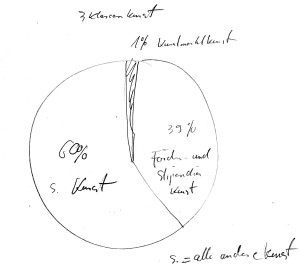 3 Klassenkunst
1% Kunstmarktkunst
39%
Förder- und
Stipendien
Kunst
60%
s. Kunst
s. = alle andere Kunst